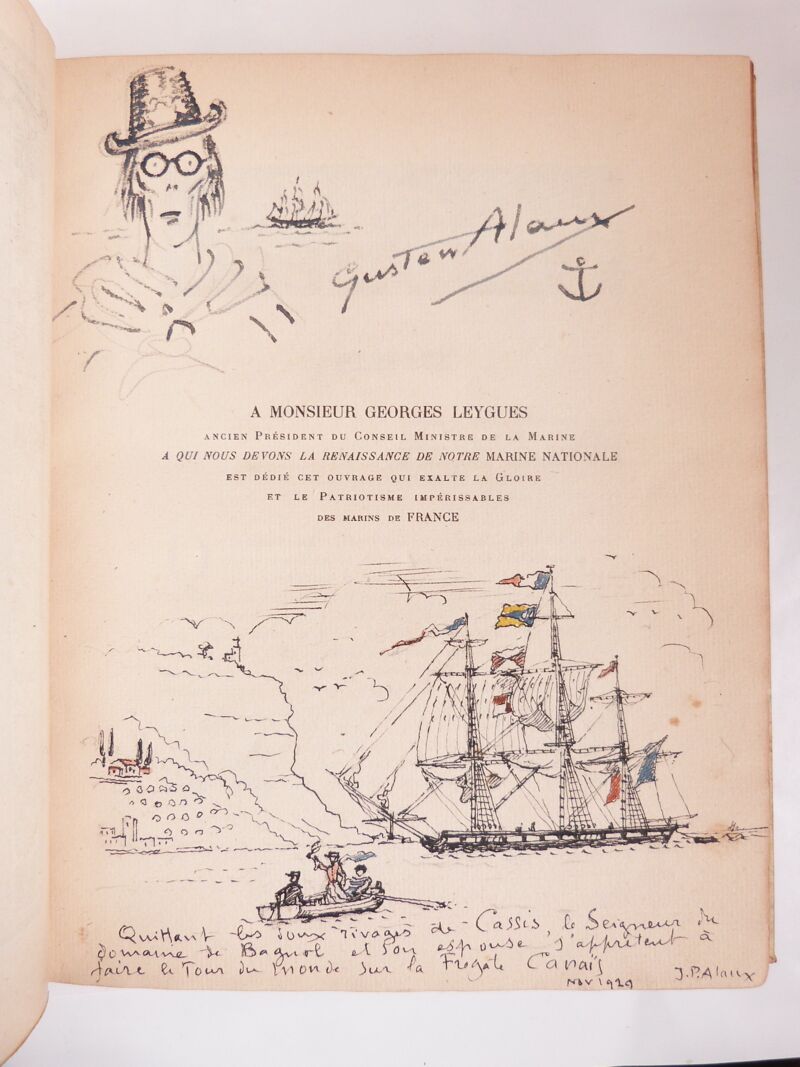 Gustave Alaux
A MONSIEUR GEORGES LEYGUES
ANCIEN PRÉSIDENT DU CONSEIL MINISTRE DE LA MARINE
A QUI NOUS DEVONS LA RENAISSANCE DE NOTRE MARINE NATIONALE
EST DÉDIÉ CET OUVRAGE QUI EXALTE LA GLOIRE
ET LE PATRIOTISME IMPÉRISSABLES
DES MARINS DE FRANCE
Quittant les doux rivages de Cassis, le Seigneur du
domaine de Bagnol et son espouse s'apprêtent à
faire le Tour du monde sur la Frégate
Nov 1929
J.P. Alaux